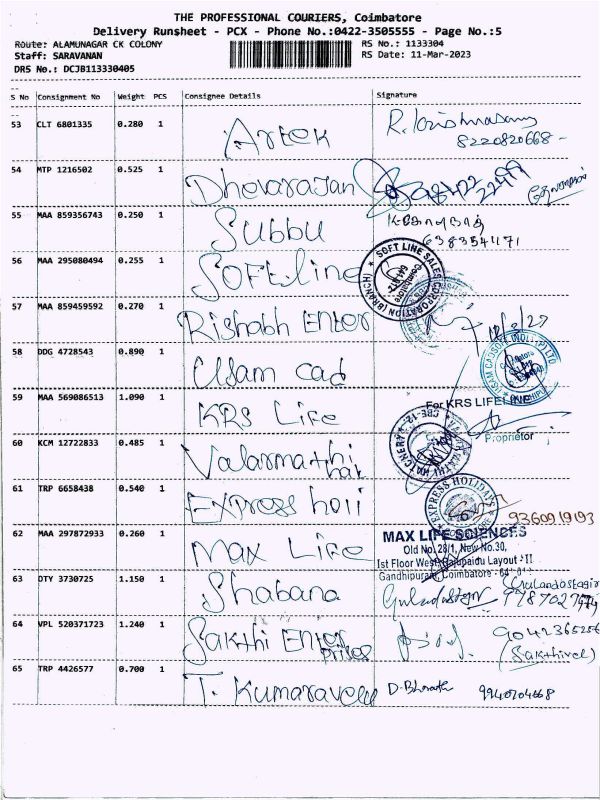 THE PROFESSIONAL COURIERS, Coimbatore
Delivery Runsheet - PCX - Phone No.:0422-3505555 - Page No.:5
Route: ALAMUNAGAR CK COLONY RS No.: 1133304
Staff: SARAVANAN RS Date: 11-Mar-2023
DRS No.: DCJB113330405
S No Consignment No Weight PCS Consignee Details Signature
53 CLT 6801335 0.280 1 Artek
8220820668
54 MTP 1216502 0.525 1 Dhevarajan
55 MAA 859356743 0.250 1 Subbu
56 MAA 295080494 0.255 1 Softline
SOFT LINE SALES CORPORATION (BRANCH)
57 MAA 859459592 0.270 1 Rishabh Enter
58 DDG 4728543 0.890 1 Usam cad
59 MAA 569086513 1.090 1 KRS Life
For KRS LIFELINE
Proprietor
60 KCM 12722833 0.485 1 Valarmathi hat
61 TRP 6658438 0.540 1 Express holi
EXPRESS HOLIDAYS
9360919193
62 MAA 297872933 0.260 1 Max Life
MAX LIFE SCIENCES
Old No. 28/1, New No.30,
Ist Floor West Layout
Gandhipuram, Coimbatore
63 DTY 3730725 1.150 1 Shabana
64 VPL 520371723 1.240 1 Sakthi Enter prises
(Sakthivel)
65 TRP 4426577 0.700 1 T. Kumaravelu D. Bharath 9940204668